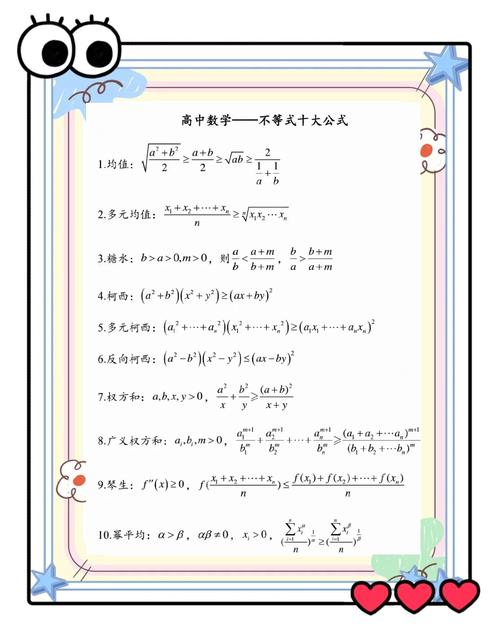 高中数学——不等式十大公式
1.均值：√((a²+b²)/2) ≥ (a+b)/2 ≥ √(ab) ≥ 2/(1/a+1/b)
2.多元均值：(x₁+x₂+⋯+xₙ)/n ≥ ⁿ√(x₁x₂⋯xₙ)
3.糖水：b>a>0,m>0，则 a/b < (a+m)/(b+m)，b/a > (b+m)/(a+m)
4.柯西：(a²+b²)(x²+y²)≥(ax+by)²
5.多元柯西：(a₁²+⋯+aₙ²)(x₁²+⋯+xₙ²)≥(a₁x₁+⋯+aₙxₙ)²
6.反向柯西：(a²−b²)(x²−y²)≤(ax−by)²
7.权方和：a,b,x,y>0，a²/x + b²/y ⩾ (a+b)²/(x+y)
8.广义权方和：aᵢ,bᵢ,m>0，a₁^(m+1)/b₁^m + a₂^(m+1)/b₂^m + ⋯ + aₙ^(m+1)/bₙ^m ⩾ (a₁+a₂+⋯aₙ)^(m+1)/(b₁+b₂+⋯bₙ)^m
9.琴生：f″(x)≥0，f((x₁+x₂+⋯+xₙ)/n) ≤ (f(x₁)+f(x₂)+⋯+f(xₙ))/n
10.幂平均：α>β，αβ≠0，xᵢ>0，((∑ᵢ₌₁ⁿ xᵢ^α)/n)^(1/α) ≥ ((∑ᵢ₌₁ⁿ xᵢ^β)/n)^(1/β)